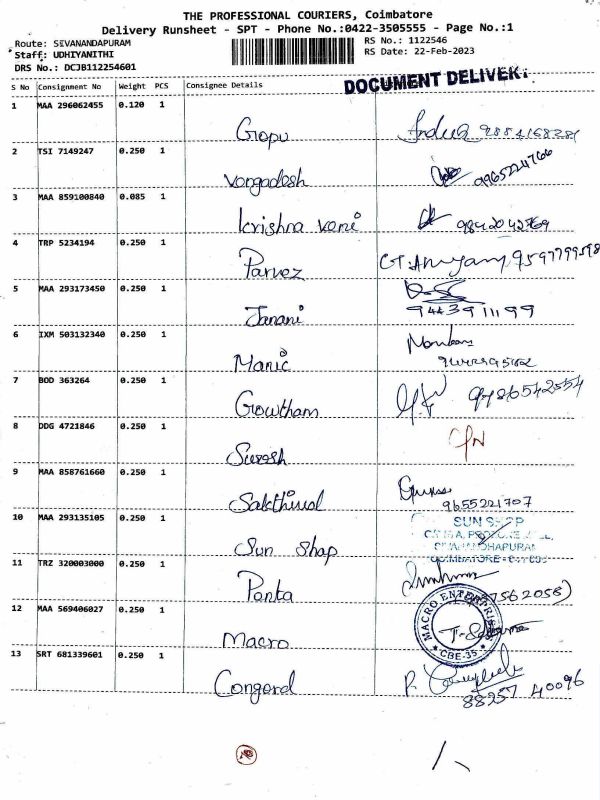 THE PROFESSIONAL COURIERS, Coimbatore
Delivery Runsheet - SPT - Phone No.:0422-3505555 - Page No.:1
Route: SEVANANDAPURAM RS No.: 1122546
Staff: UDHIYANITHI RS Date: 22-Feb-2023
DRS No.: DCJB112254601
DOCUMENT DELIVER
S No Consignment No Weight PCS Consignee Details
1 MAA 296062455 0.120 1
Gopu
2 TSI 7149247 0.250 1
Vongadesh 9965224766
3 MAA 859100840 0.085 1
krishna veni 9842042769
4 TRP 5234194 0.250 1
Parvez 9597799598
5 MAA 293173450 0.250 1
Janani 9443911199
6 IXM 503132340 0.250 1
Manic
7 BOD 363264 0.250 1
Gowtham 9786542554
8 DDG 4721846 0.250 1
Suresh
9 MAA 858761660 0.250 1
Sakthivel 9655221707
10 MAA 293135105 0.250 1 SUN SHOP
Sun Shap COIMBATORE
11 TRZ 320003000 0.250 1
Panta
12 MAA 569406027 0.250 1 MACRO ENTERPRISES
Macro CBE-35
13 SRT 681339601 0.250 1
Congord 88257 40096